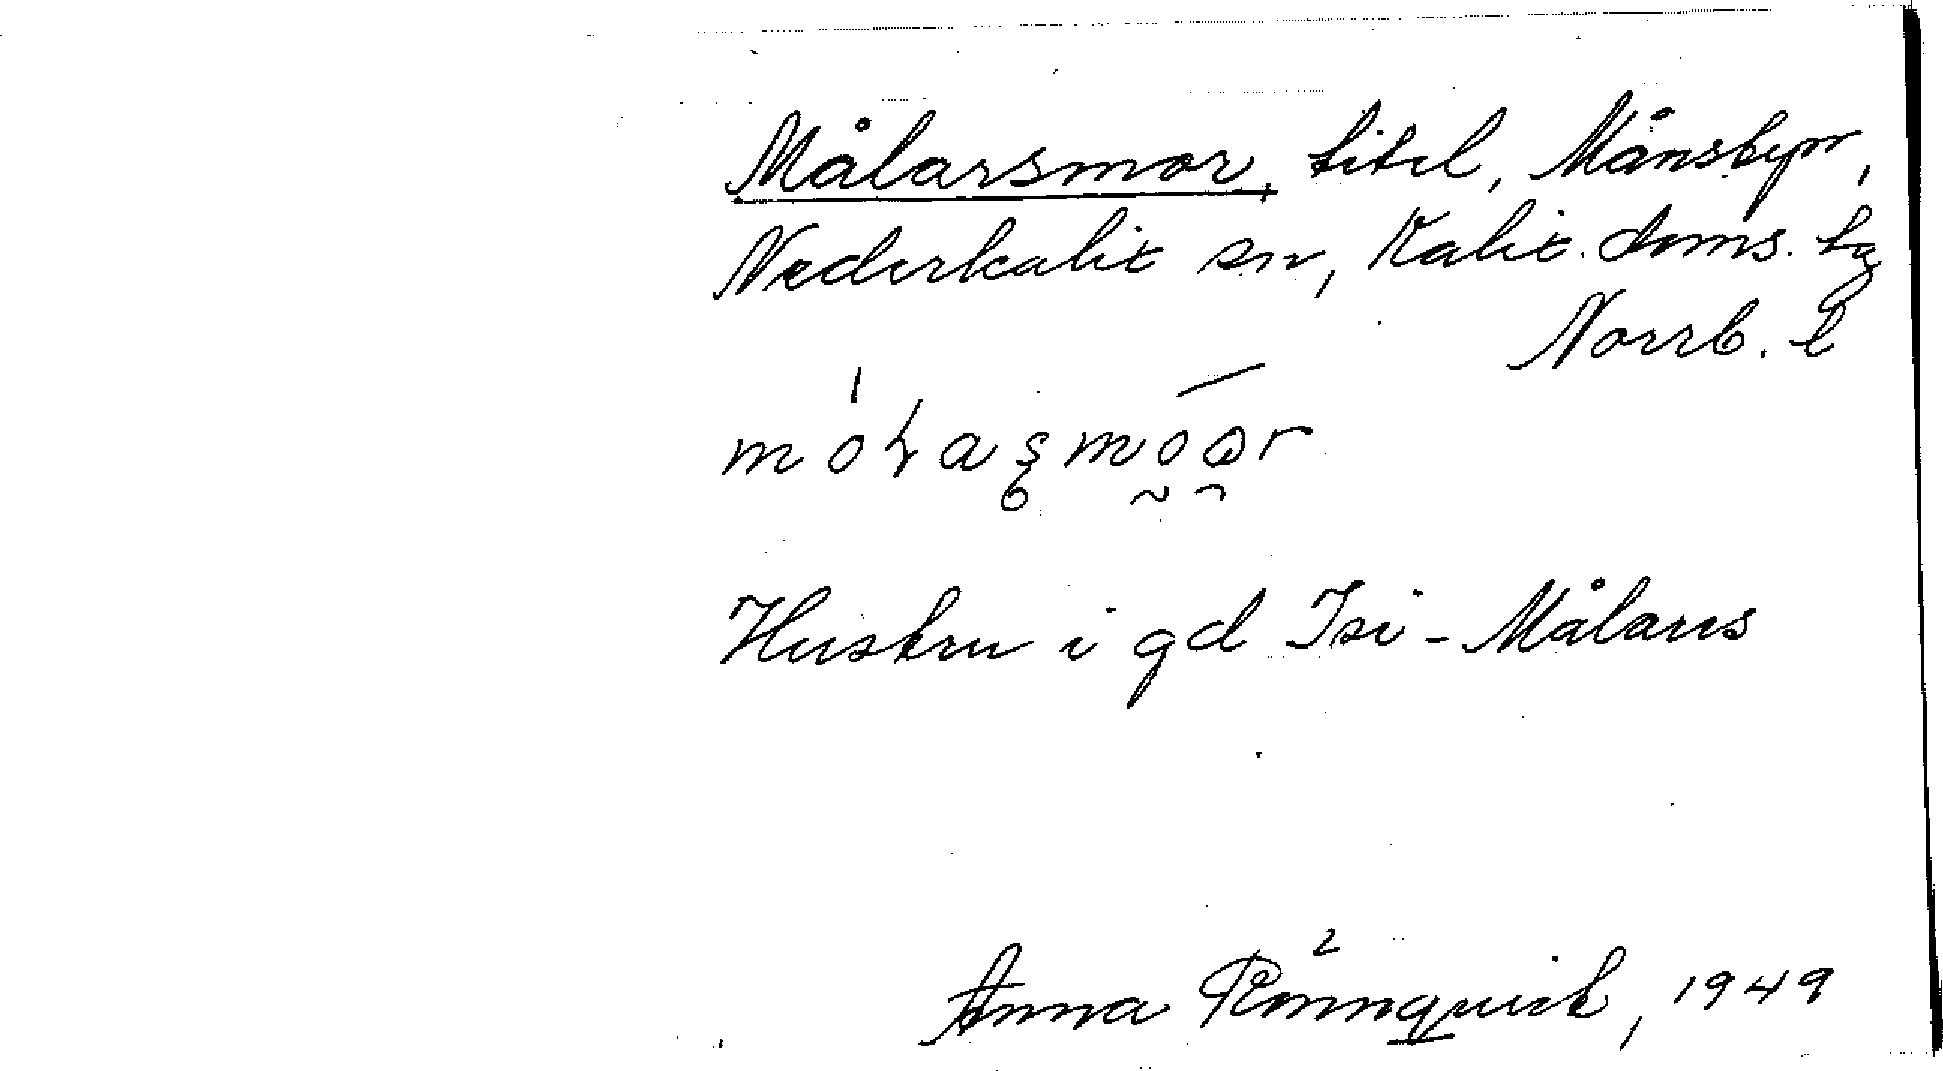 Målarsmor, titel, Månsbyn,
Nederkalix sn, Kalix doms. tg
Norrb. l
Hustru i gd Isi-Målars
Anna Rönnqvist, 1949